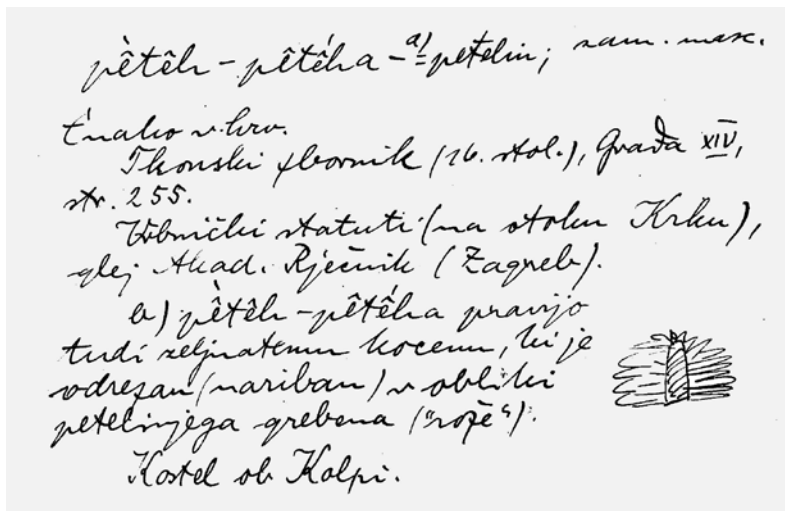 pȅtêh – pêtéha – a) = petelin; sam. masc.
Enako v hrv.
Tkonski zbornik (16. stol.), Građa XIV,
str. 255.
Vrbnički statuti (na otoku Krku),
glej Akad. Rječnik (Zagreb).
b) pȅtêh – pêtéha pravijo
tudi zeljnatemu kocenu, ki je
odrezan (nariban) v obliki
petelinjega grebena ("rože").
Kostel ob Kolpi.